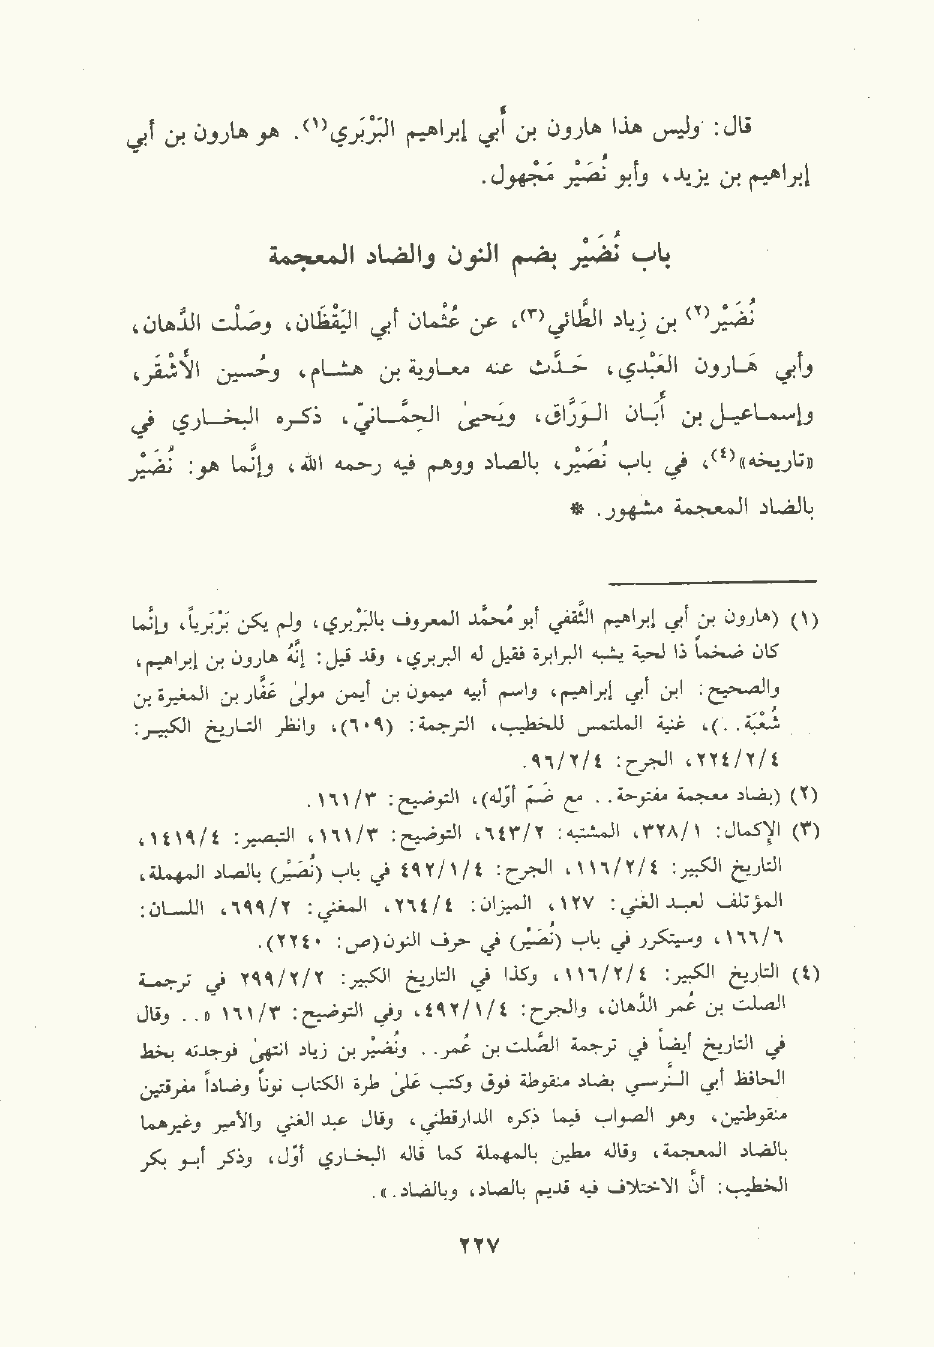 قال: وليس هذا هارون بن أبي إبراهيم البَرْبَري(١). هو هارون بن أبي
إبراهيم بن يزيد، وأبو نُصَيْر مَجْهول.
باب نُضَيْر بضم النون والضاد المعجمة
نُضَيْر(٢) بن زياد الطَّائي(٣)، عن عُثْمان أبي اليَقْظَان، وصَلْت الدَّهان،
وأبي هَارون العَبْدي، حَدَّث عنه معاوية بن هشام، وحُسين الأَشْقر،
وإسماعيل بن أَبَان الوَرَّاق، ويَحيىٰ الحِمَّانيّ، ذكره البخاري في
«تاريخه»(٤)، في باب نُصَيْر، بالصاد ووهم فيه رحمه الله، وإنَّما هو: نُضَيْر
بالضاد المعجمة مشهور. *
(١) (هارون بن أبي إبراهيم الثَّقفي أبو مُحمَّد المعروف بالبَرْبري، ولم يكن بَرْبَرياً، وإنَّما
كان ضخماً ذا لحية يشبه البرابرة فقيل له البربري، وقد قيل: إنَّه هارون بن إبراهيم،
والصحيح: ابن أبي إبراهيم، واسم أبيه ميمون بن أيمن مولىٰ عَقَّار بن المغيرة بن
شُعْبَة. .)، غنية الملتمس للخطيب، الترجمة: (٦٠٩)، وانظر التاريخ الكبير:
٤/٢/٢٢٤، الجرح: ٤/٢/٩٦.
(٢) (بضاد معجمة مفتوحة. . مع ضَمِّ أوّله)، التوضيح: ٣/١٦١.
(٣) الإكمال: ١/٣٢٨، المشتبه: ٢/٦٤٣، التوضيح: ٣/١٦١، التبصير: ٤/١٤١٩،
التاريخ الكبير: ٤/٢/١١٦، الجرح: ٤/١/٤٩٢ في باب (نُصَيْر) بالصاد المهملة،
المؤتلف لعبد الغني: ١٢٧، الميزان: ٤/٢٦٤، المغني: ٢/٦٩٩، اللسان:
٦/١٦٦، وسيتكرر في باب (نُصَيْر) في حرف النون(ص: ٢٢٤٠).
(٤) التاريخ الكبير: ٤/٢/١١٦، وكذا في التاريخ الكبير: ٢/٢/٢٩٩ في ترجمة
الصلت بن عُمر الدَّهان، والجرح: ٤/١/٤٩٢، وفي التوضيح: ٣/١٦١ «. . وقال
في التاريخ أيضاً في ترجمة الصَّلت بن عُمر. . ونُضَيْر بن زياد انتهىٰ فوجدته بخط
الحافظ أبي النَّرسي بضاد منقوطة فوق وكتب علىٰ طرة الكتاب نوناً وضاداً مفرقتين
منقوطتين، وهو الصواب فيما ذكره الدارقطني، وقال عبد الغني والأمير وغيرهما
بالضاد المعجمة، وقاله مطين بالمهملة كما قاله البخاري أوّل، وذكر أبو بكر
الخطيب: أنَّ الاختلاف فيه قديم بالصاد، وبالضاد.».
٢٢٧